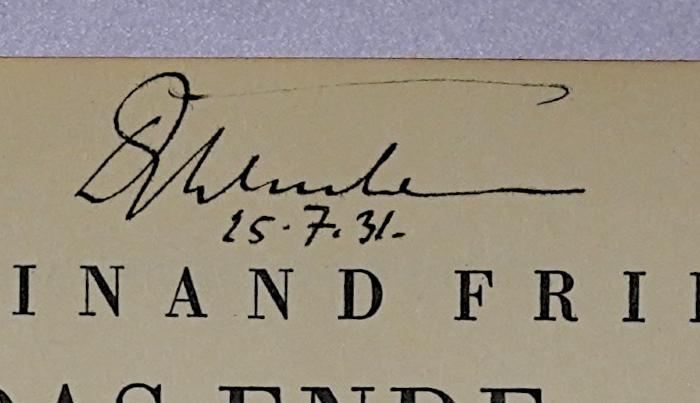 25.7.31.
INAND FRI
DAS ENDE